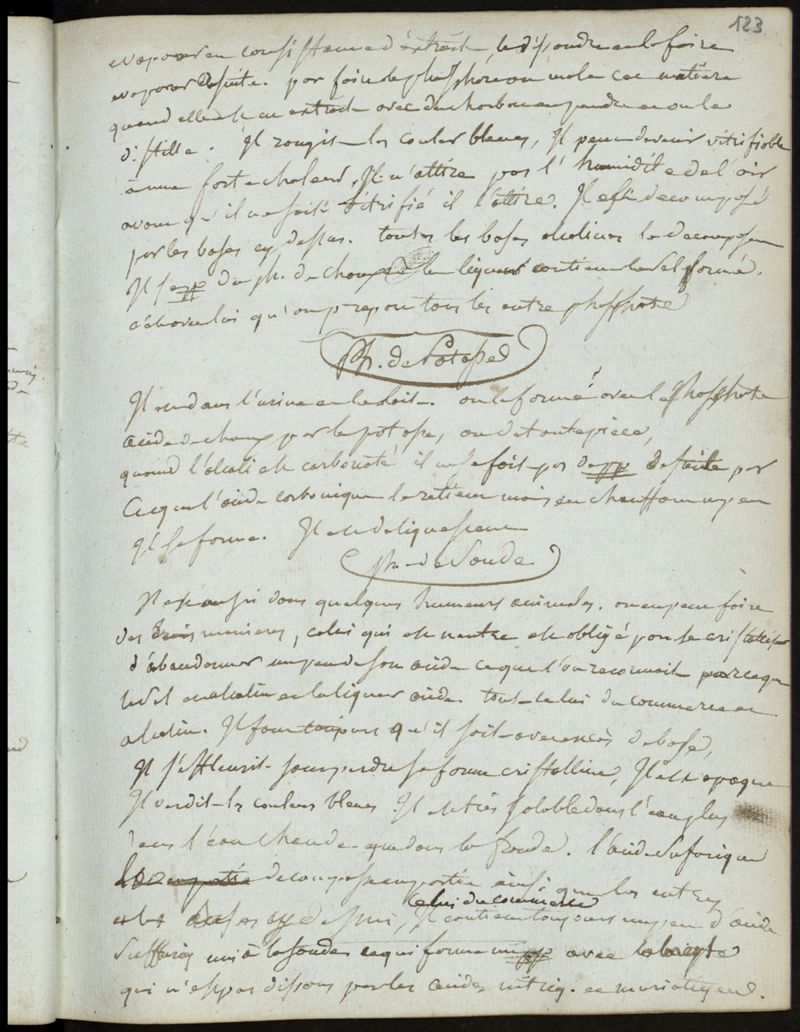 123
evaporer en consistance d'extrait, le dissoudre et le faire
evaporer de suite. pour faire le phosphore on mele cette matiere
quand elle est en extrait avec du charbon en poudre et on le
distille. Il rougit les couleurs bleues, Il peut devenir vitrifiable
a une forte chaleur, Il n'attire pas l'humidité de l'air
avant qu'il ne soit vitrifié il l'attire. Il est decomposé
par les bases cy dessus. toutes les bases alcalines le decomposent
Il se pp du ph. de chaux et la liqueur contient le sel formé.
c'est avec lui qu'on prepare tous les autre phosphate
Ph. de Potasse
Il est dans l'urine et le lait. on le forme avec le phosphate
acide de chaux par la potasse, ou de toute piece,
quand l'alcali est carbonaté il ne se fait pas de pp de suite par
ce que l'acide carbonique le retient mais en chauffant un peu
il se forme. Il est deliquescent
ph. de Soude
Il est aussi dans quelques humeurs animales. on en peut faire
des trois manieres, celui qui est neutre est obligé pour se cristalliser
d'abandonner un peu de son acide ce que l'on reconnait parce que
le sel est alcalin et la liqueur acide. tout celui du commerce est
alcalin. Il faut toujours qu'il soit avec excès de base,
Il s'effleurit sans perdre sa forme cristalline, Il est opaque
Il verdit les couleurs bleues Il est très soluble dans l'eau plus
dans l'eau chaude que dans la froide. l'acide sulfurique
decompose en partie ainsi que les autres
bases cy dessus, celui du commerce Il contient toujours un peu d'acide
sulfuriq uni à la soude ce qui forme un pp avec la baryte
qui n'est pas dissous par les acides nitriq. et muriatique.